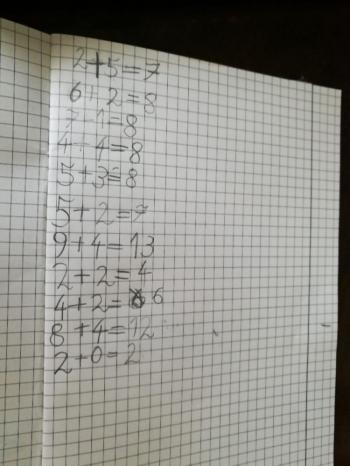 2+5=7
6+2=8
7+1=8
4+4=8
5+3=8
5+2=7
9+4=13
2+2=4
4+2=6
8+4=12
2+0=2